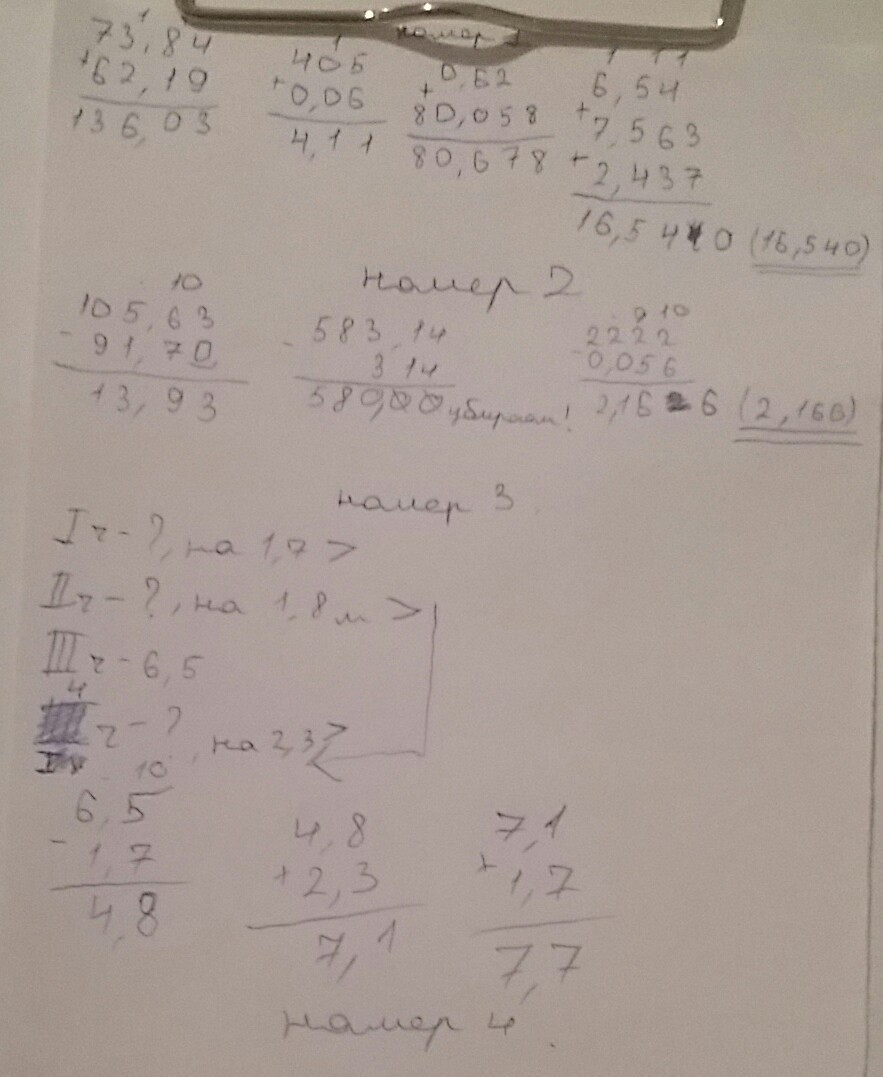 номер 1
73,84 + 62,19 136,03
405 + 0,06 4,11
0,62 + 80,058 80,678
6,54 + 7,563 + 2,437 16,540 (16,540)
номер 2
10
105,63 - 91,70 13,93
583,14 - 3 14 580,00 убираем!
9 10
2222 - 0,056 2,166 (2,166)
номер 3.
I ч - ?, на 1,7 >
II ч - ?, на 1,8 м >
III ч - 6,5
4
ч - ?, на 2,3 >
10
6,5 - 1,7 4,8
4,8 + 2,3 7,1
7,1 + 1,7 7,7
номер 4.